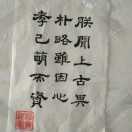 朕聞上古其
朴略雖因心
孝已萌而資